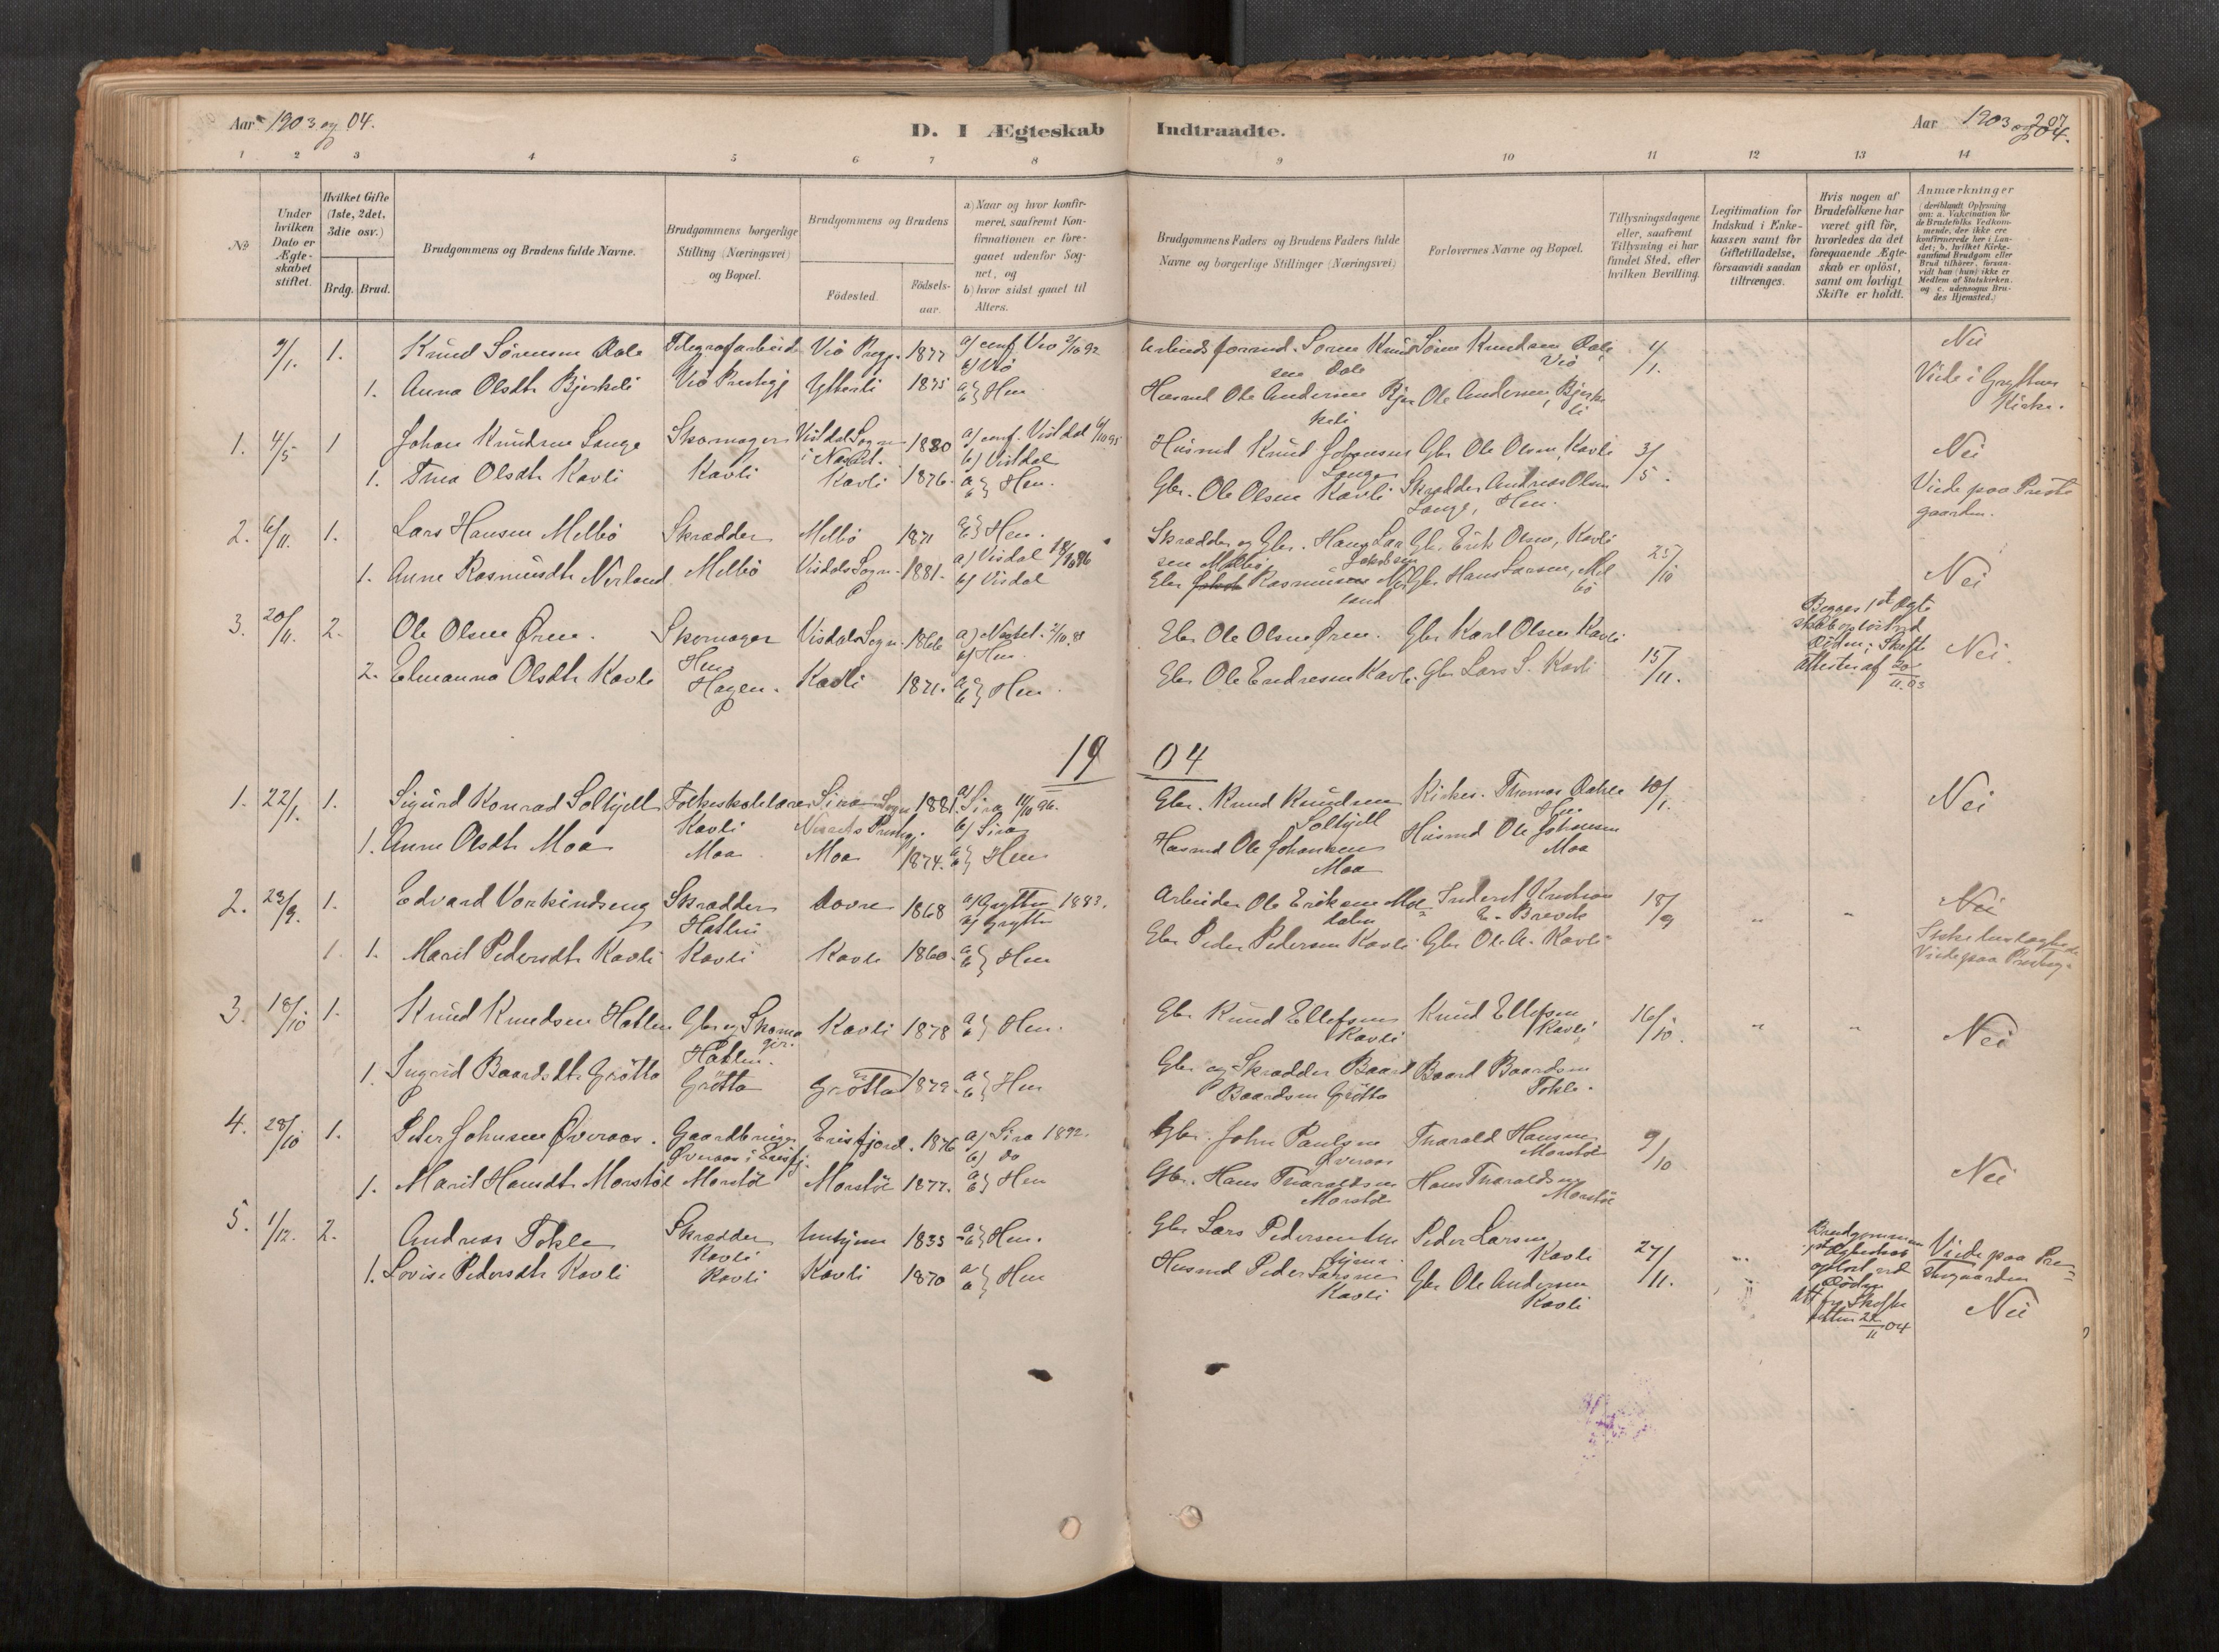 Aar 1903 og 04.
D. I Ægteskab Indtraadte.
Aar 1903 og 04.
207
1 2 3 4 5 6 7 8 9 10 11 12 13 14
No
Under hvilken Dato er Ægteskabet stiftet.
Hvilket Gifte (1ste, 2det, 3die osv.)
Brdg. Brud.
Brudgommens og Brudens fulde Navne.
Brudgommens borgerlige Stilling (Næringsvei) og Bopæl.
Brudgommens og Brudens
Födested.
Födsels-aar.
a) Naar og hvor konfirmeret, saafremt Konfirmationen er foregaaet udenfor Sognet, og
b) hvor sidst gaaet til Alters.
Brudgommens Faders og Brudens Faders fulde Navne og borgerlige Stillinger (Næringsvei)
Forlovernes Navne og Bopæl.
Tillysningsdagene eller, saafremt Tillysning ei har fundet Sted, efter hvilken Bevilling.
Legitimation for Indskud i Enkekassen samt for Giftetilladelse, forsaavidt saadan tiltrænges.
Hvis nogen af Brudefolkene har været gift för, hvorledes da det foregaaende Ægteskab er oplöst, samt om lovligt Skifte er holdt.
Anmærkninger (deriblandt Oplysning om: a. Vakcination for de Brudefolks Vedkommende, der ikke ere konfirmerede her i Landet; b. hvilket Kirkesamfund Brudgom eller Brud tilhörer, forsaavidt han (hun) ikke er Medlem af Statskirken, og c. udensogns Brudes Hjemsted.)
9/1. 1. Knud Sörensen Dale Telegrafarbeid Veö Pregj. 1877 a) conf. Veö 2/10 92 b) Veö Arbeidsformd. Sören Knudsen Dale Sören Knudsen Dale, Veö 4/1. Nei
1. Anna Olsdtr Bjerkeli Veö Prestegj Ytterli 1875 a b} Hen Husmd Ole Andersen Bjerkeli Ole Andersen, Bjerkeli Viede i Gryttens Kirke.
1. 4/5 1 Johan Knudsen Lange Skomager Vistdal Sogn i Nesset. 1880 a) conf. Vistdal 6/10 95 b) Vistdal Husmd Knud Johansen Lange Gbr Ole Olsen, Kavli 3/5. Nei
1. Trea Olsdtr Kavli Kavli Kavli 1876. a b} Hen. Gbr. Ole Olsen Kavli Skrædder Andreas Olsen Lange, Hen. Viede paa Prestegaarden.
2. 6/11. 1. Lars Hansen Melbö Skrædder Melbö 1871 a b} Hen. Skrædder og Gbr. Hans Larsen Melbö, Gbr. Erik Olsen, Kavli 25/10
1. Anne Rasmusdtr Nerland, Melbö Visdals Sogn. 1881. a) Visdal 18/10 96 b) Visdal Gbr Rasmus Jakobsen Nerland Gbr Hans Larsen, Melbö Nei
3. 20/11. 2. Ole Olsen Øren. Skomager Hen Visdals Sogn. 1866 a) Nesset 2/10 81 b) Hen. Gbr Ole Olsen Øren. Gbr Karl Olsen Kavli 15/11. Begges 1ste Ægteskab oplöst ved Döden; Skifteattester af 20/11.03 Nei.
2. Elmanna Olsdtr Kavle Hagen. Kavli 1871. a b} Hen. Gbr Ole Endresen Kavli. Gbr Lars S. Kavli
1904
1. 22/1. 1. Sigurd Konrad Solhjell Folkeskolelærer Kavli Sira Sogn Nesset Prestegj. 1881. a) Sira 11/10 96. b) Sira Gbr. Knud Knudsen Solhjell Kirkes. Thomas Dahle Hen 10/1. Nei
1. Anne Olsdtr Moa Moa Moa 1874. a b} Hen Husmd Ole Johansen Moa Husmd Ole Johansen Moa
2. 23/9. 1. Edvard Vorkindseng Skrædder Hatlen Dovre 1868 a) Grytten 1883. b) Grytten Arbeider Ole Eriksen Kristian E. Brevik 18/9 " " Nei
1. 1. Marit Pedersdtr Kavli Kavli Kavle 1860. a b} Hen Gbr Peder Pedersen Kavli. Gbr Ole A. Kavli Viede paa Presteg.
3. 18/10 1. Knud Knudsen Hatlen Gbr og Skomager. Hatlen. Kavli 1878 a b} Hen. Gbr Knud Ellefsen Kavli Knud Ellefsen Kavli 16/10. " " Nei
1. Ingrid Baardsdtr Grötta Grötta Grötta 1879. a b} Hen Gbr og Skrædder Baard Baardsen Grötta Baard Baardsen Tokle.
4. 28/10 1. Peder Johnsen Øveraas. Gaardbruger Øveraas i Eresfj. Erisfjord. 1876 a) Sira 1892. b) do Gbr. John Paulsen Øveraas Tharald Hansen Morstöl 9/10 Nei
1. Marit Hansdtr Morstöl Morstöl Morstöl 1877. a b} Hen Gbr. Hans Tharaldsen Morstöl Hans Tharaldsen Morstöl
5. 1/12. 2. Andreas Tokle Skrædder Kavli Unhjem 1835 a b} Hen. Gbr Lars Pedersen Unhjem. Peder Larsen Kavli 27/11. " Brudgommens 1ste Ægteskab oplöst ved Döden Att fra Skifteretten 22/11 04 Viede paa Prestegaarden
1. Lovise Pedersdtr Kavli Kavli Kavli 1870 a b} Hen Husmd Peder Larsen Kavli Gbr Ole Andersen Kavli " Nei